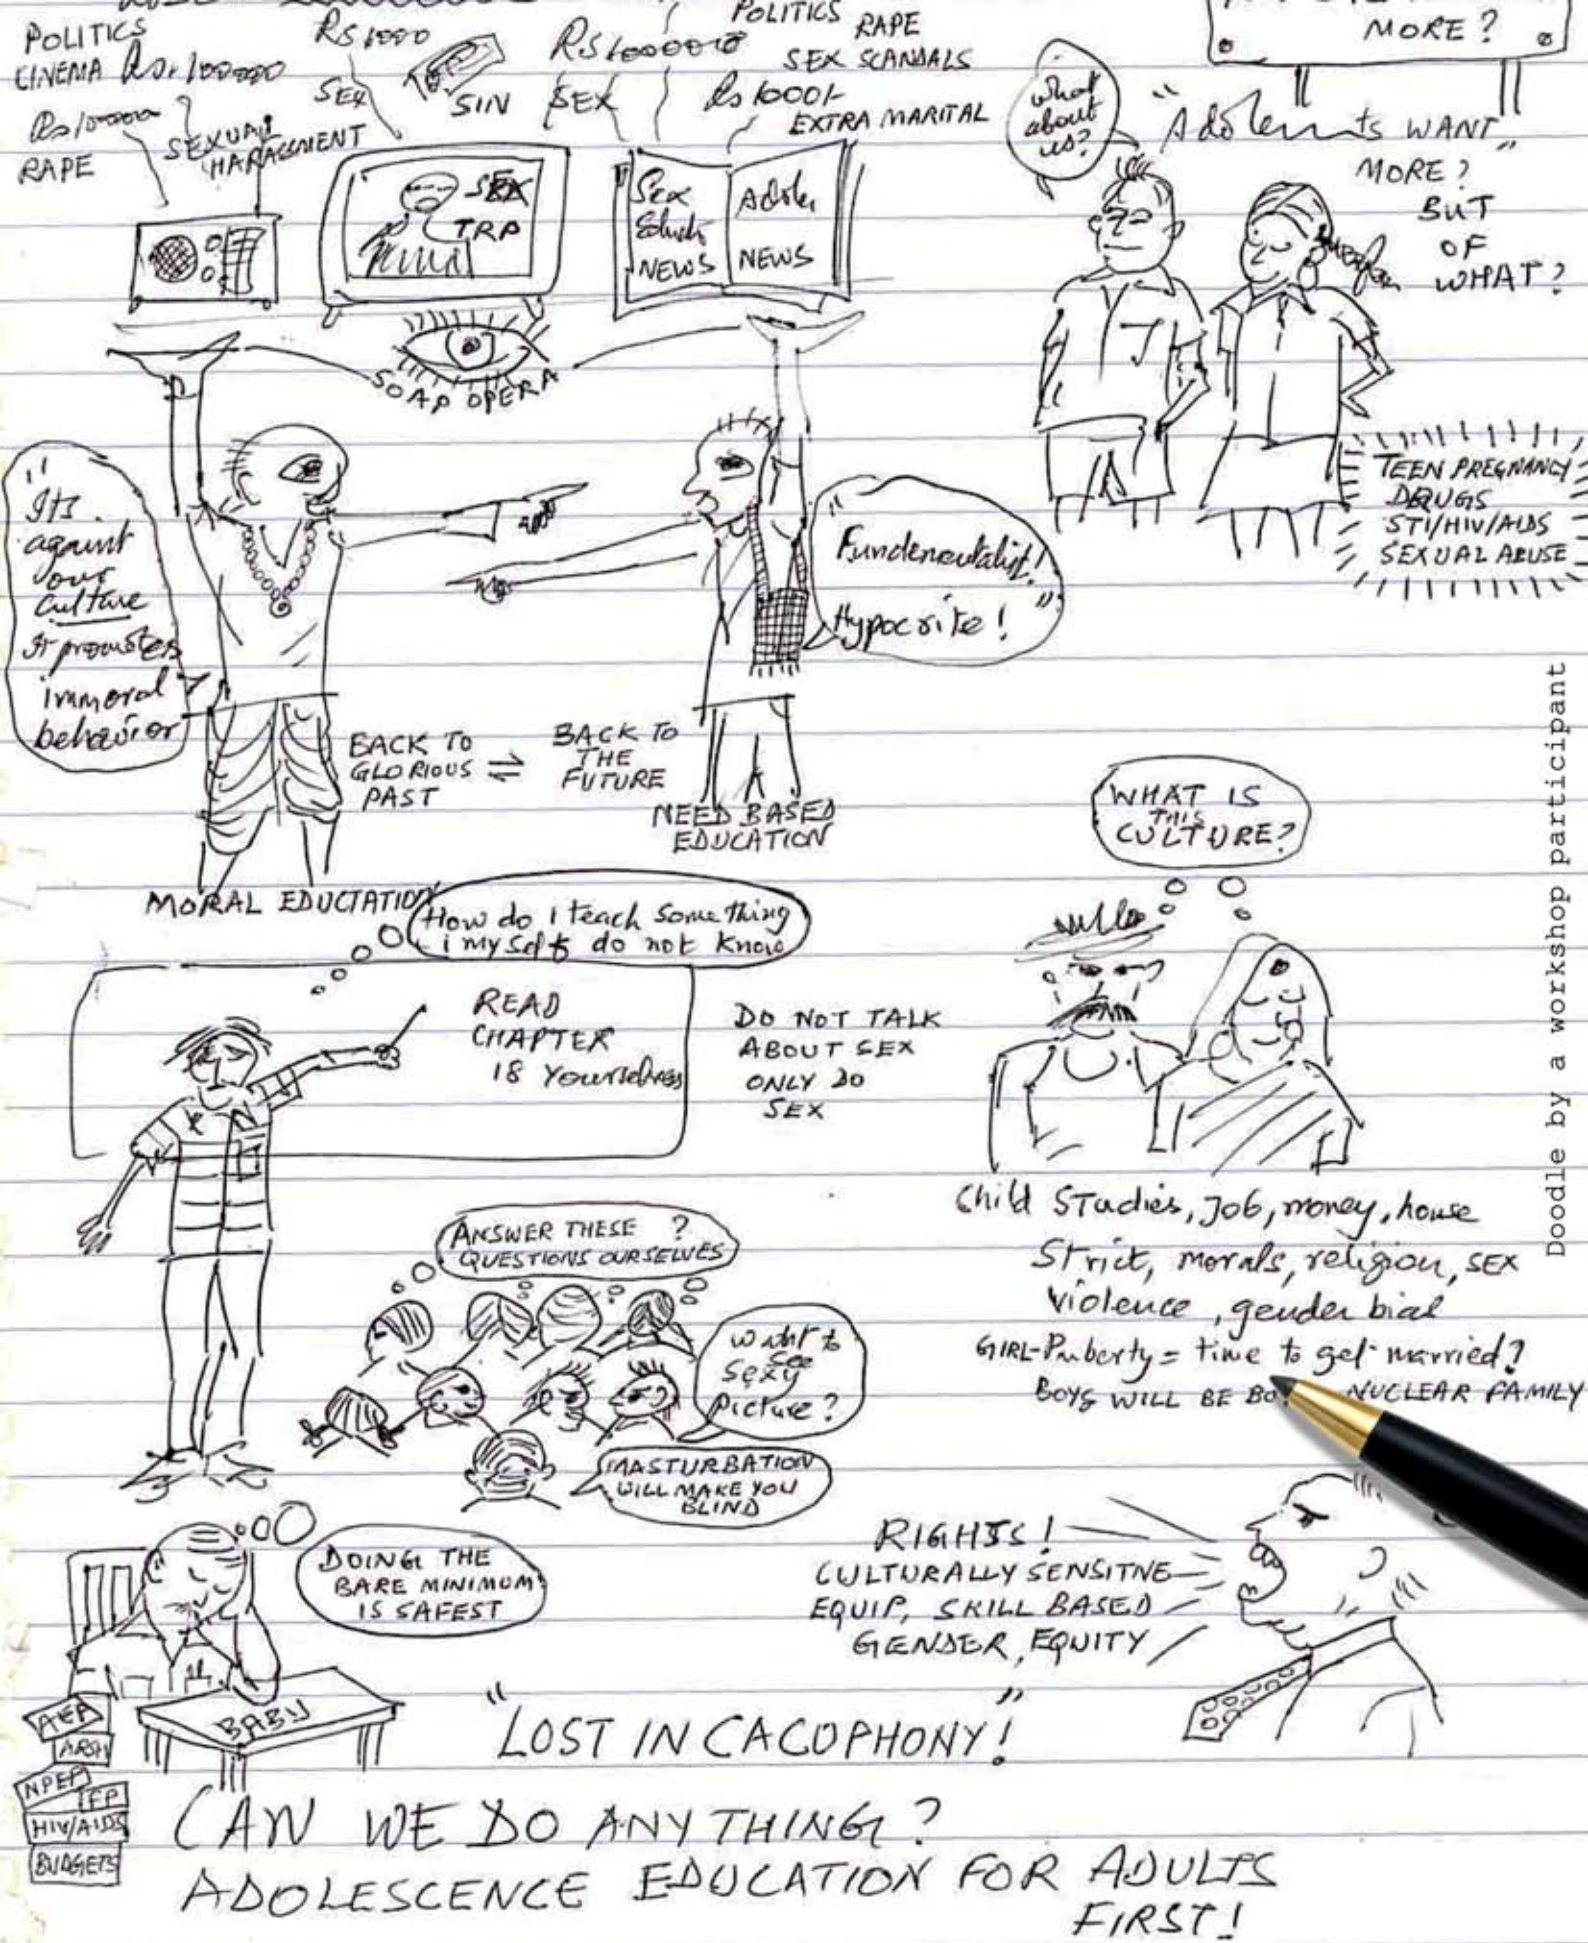 POLITICS
CINEMA Rs.100000
Rs10000
RAPE
SEXUAL
HARASSMENT
Rs 1000
SEX
SIN
Rs1000000
SEX
POLITICS
RAPE
SEX SCANDALS
Rs 1000/-
EXTRA MARITAL
SEX
TRP
Sex
NEWS
NEWS
SOAP OPERA
MORE?
what
about
us?
WANT
MORE?
BUT
OF
WHAT?
TEEN PREGNANCY
DRUGS
STI/HIV/AIDS
SEXUAL ABUSE
"Its
against
our
culture
It promotes
immoral
behavior
Hypocrite!"
BACK TO
GLORIOUS
PAST
⇌
BACK TO
THE
FUTURE
MORAL EDUCTATION
NEED BASED
EDUCATION
WHAT IS
THIS
CULTURE?
How do I teach some thing
i my self do not know
READ
CHAPTER
18 Yourselves
DO NOT TALK
ABOUT SEX
ONLY DO
SEX
Child Studies, Job, money, house
Strict, morals, religion, SEX
violence, gender bial
GIRL-Puberty = time to get married?
BOYS WILL BE BO
NUCLEAR FAMILY
ANSWER THESE ?
QUESTIONS OURSELVES
want to
see
sexy
picture?
MASTURBATION
WILL MAKE YOU
BLIND
DOING THE
BARE MINIMUM
IS SAFEST
RIGHTS!
CULTURALLY SENSITIVE
EQUIP, SKILL BASED
GENDER, EQUITY
BABU
AEP
ARSH
NPEP
HIV/AIDS
BUDGETS
"LOST IN CACOPHONY!"
CAN WE DO ANYTHING?
ADOLESCENCE EDUCATION FOR ADULTS
FIRST!
Doodle by a workshop participant